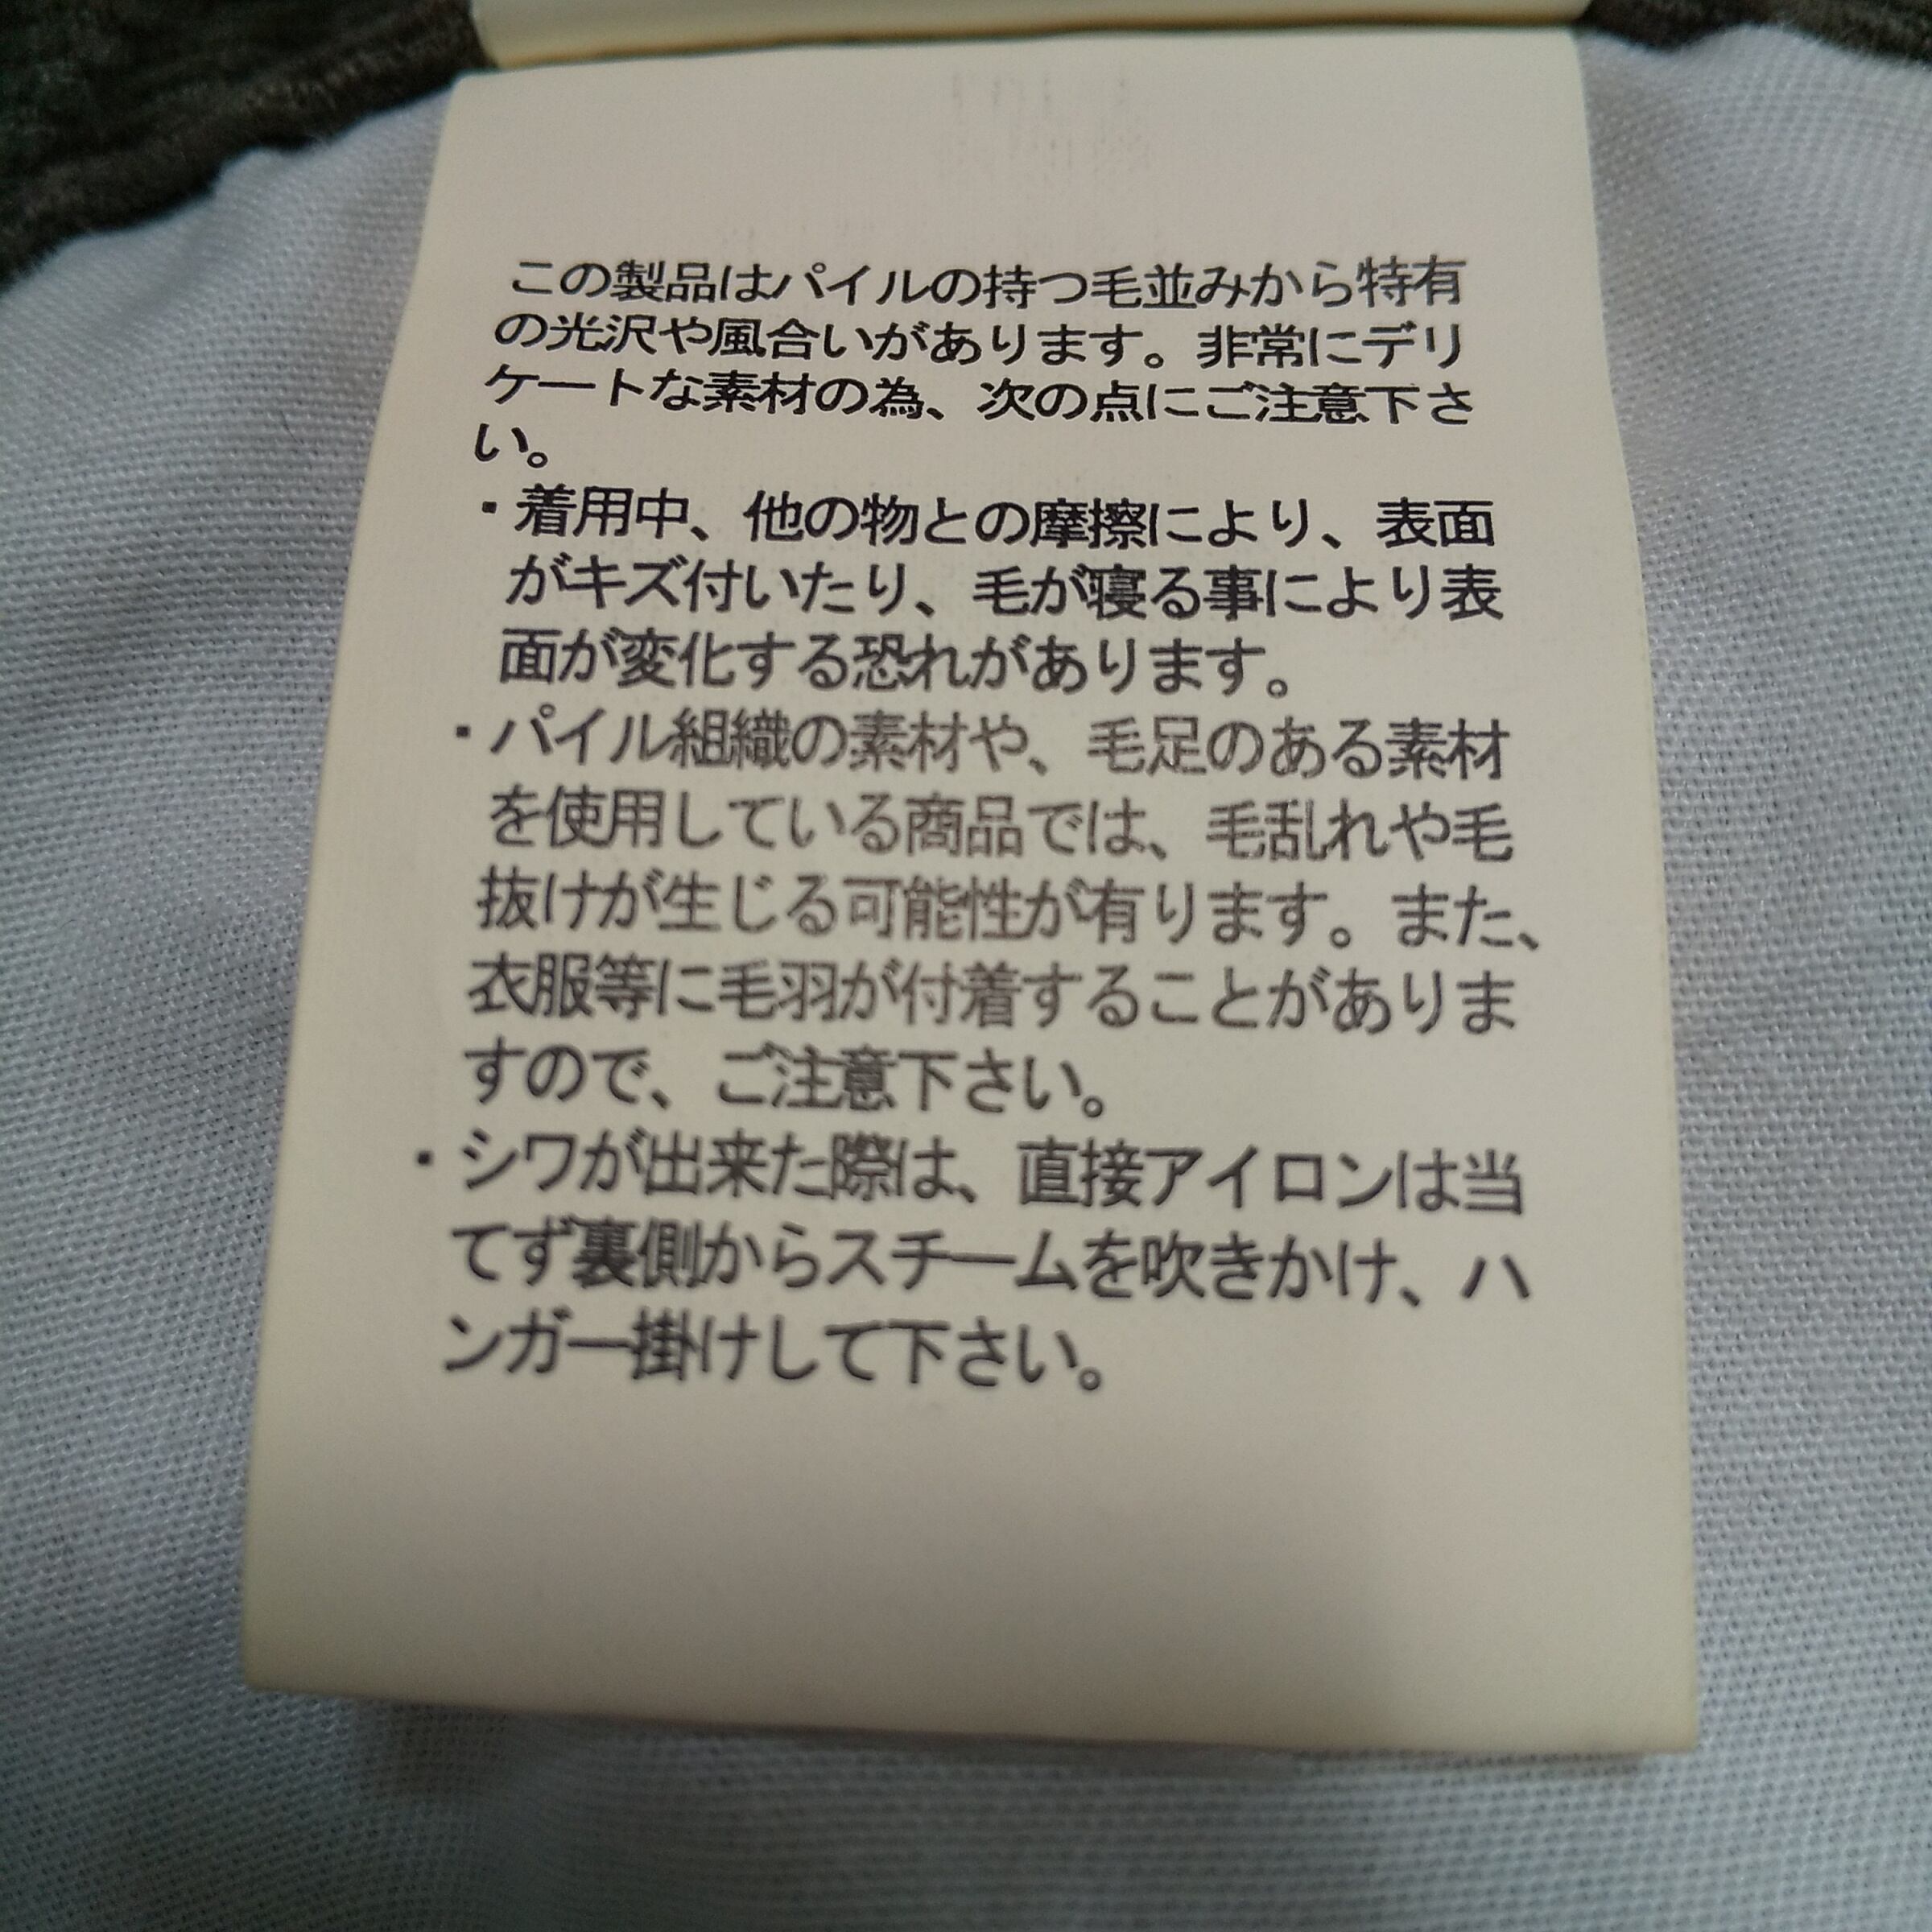 この製品はパイルの持つ毛並みから特有
の光沢や風合いがあります。非常にデリ
ケートな素材の為、次の点にご注意下さ
い。
・着用中、他の物との摩擦により、表面
がキズ付いたり、毛が寝る事により表
面が変化する恐れがあります。
・パイル組織の素材や、毛足のある素材
を使用している商品では、毛乱れや毛
抜けが生じる可能性が有ります。また、
衣服等に毛羽が付着することがありま
すので、ご注意下さい。
・シワが出来た際は、直接アイロンは当
てず裏側からスチームを吹きかけ、ハ
ンガー掛けして下さい。